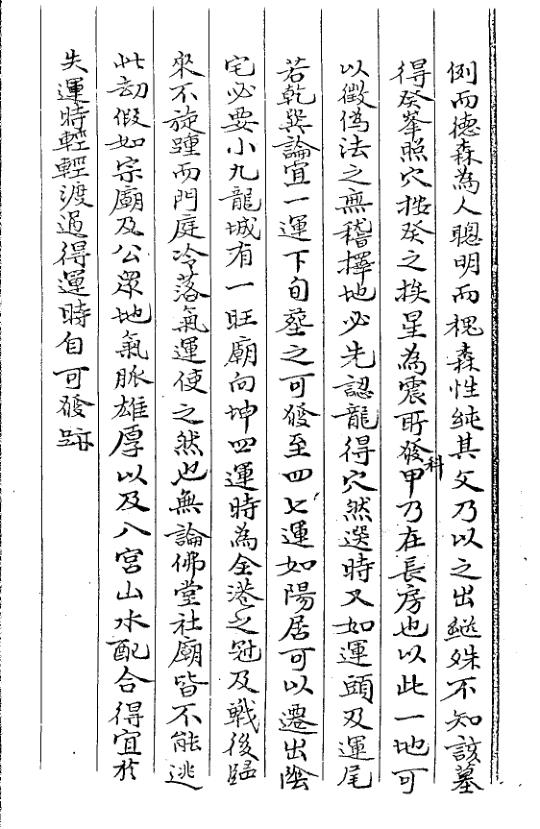 例而德森為人聰明而槐森性純其父乃以之出繼殊不知該墓
得癸峯照穴按癸之挨星為震所發科甲乃在長房也以此一地可
以徵偽法之無稽擇地必先認龍得穴然選時又如運頭及運尾
若乾巽論宜一運下旬塟之可發至四七運如陽居可以遷出陰
宅必要小九龍城有一旺廟向坤四運時為全港之冠及戰後歸
來不旋踵而門庭冷落氣運使之然也無論佛堂社廟皆不能逃
此劫假如宗廟及公眾地氣脈雄厚以及八宮山水配合得宜於
失運時輕輕渡過得運時自可發跡